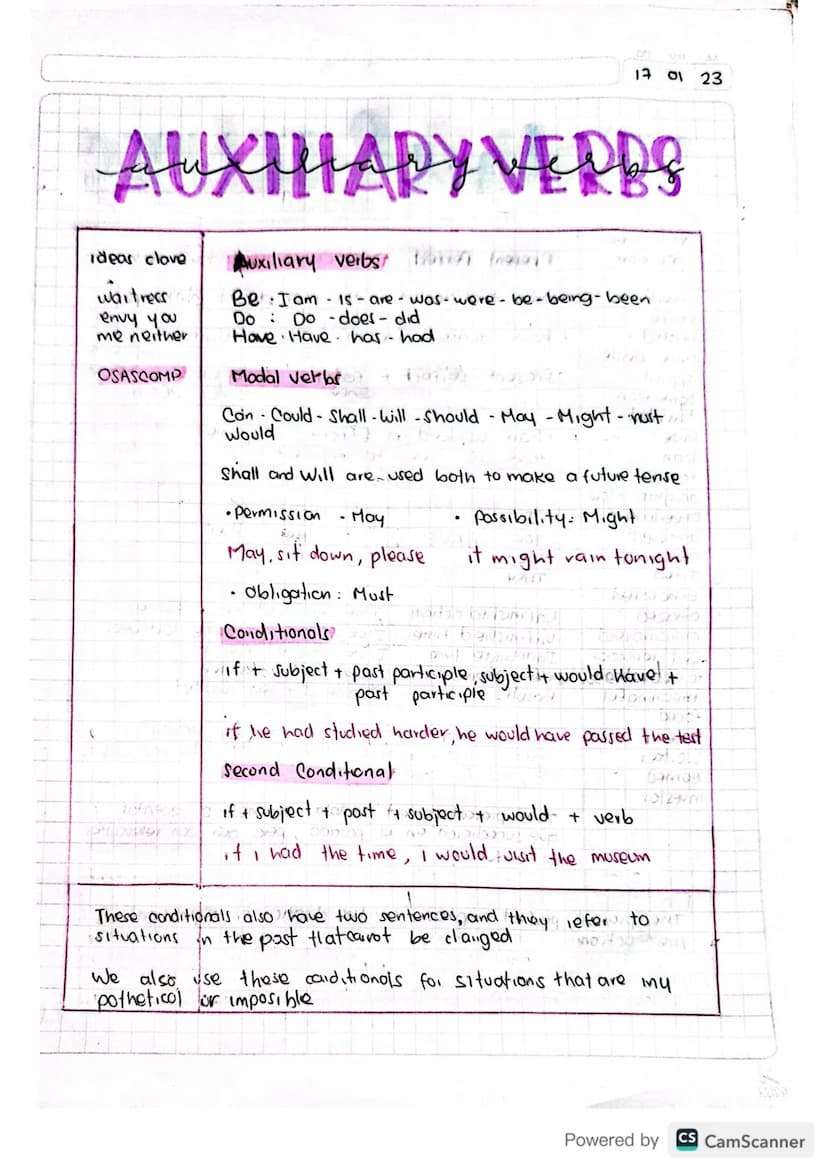 17 01 23
AUXILIARY VERBS
auxiliary verbs
ideas clave
Auxiliary verbs
waitress
envy you
me neither
Be : I am - is - are - was - were - be - being - been
Do : Do - does - did
Have · Have · has - had
OSASCOMP
Modal verbs
Can - Could - Shall - Will - Should - May - Might - must
would
Shall and Will are used both to make a future tense
• Permission - May
• Possibility: Might
May, sit down, please
it might rain tonight
• Obligation: Must
Conditionals
if + subject + past participle, subject + would have +
past participle
if he had studied harder, he would have passed the test
Second Conditional
if + subject + past + subject + would + verb
if i had the time, i would visit the museum
These conditionals also have two sentences, and they refer to
situations in the past that canot be changed
We also use these conditionals for situations that are my
pothetical or imposible
Powered by CS CamScanner